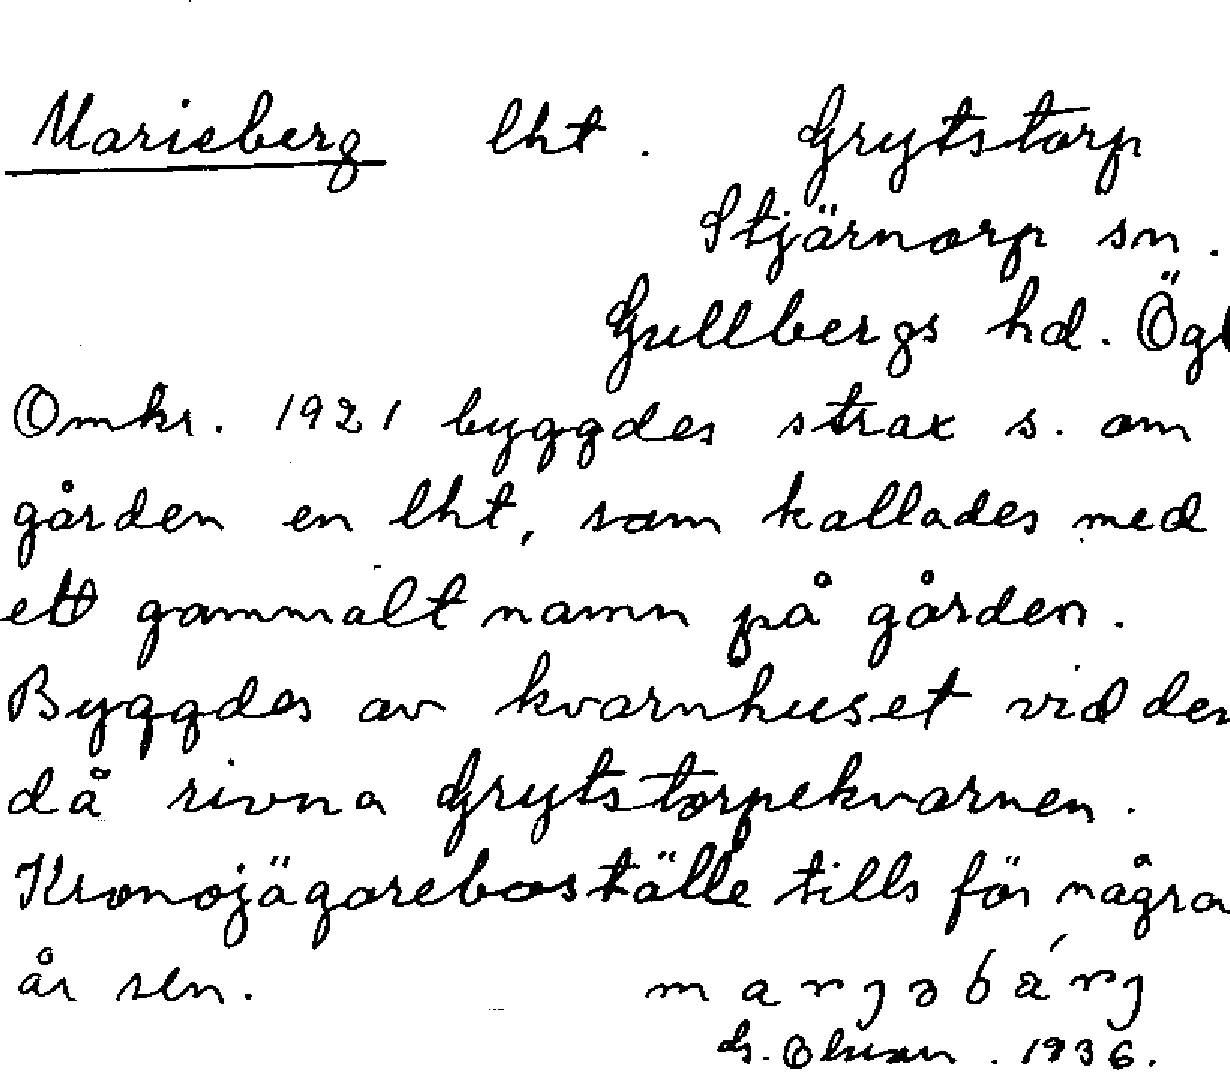 Marieberg lht. Grytstorp
Stjärnorp sn.
Gullbergs hd. Ögl
Omkr. 1921 byggdes strax s. om
gården en lht, som kallades med
ett gammalt namn på gården.
Byggdes av kvarnhuset vid den
då rivna Grytstorpekvarnen.
Kronojägareboställe tills för några
år sen.
G. 1936.